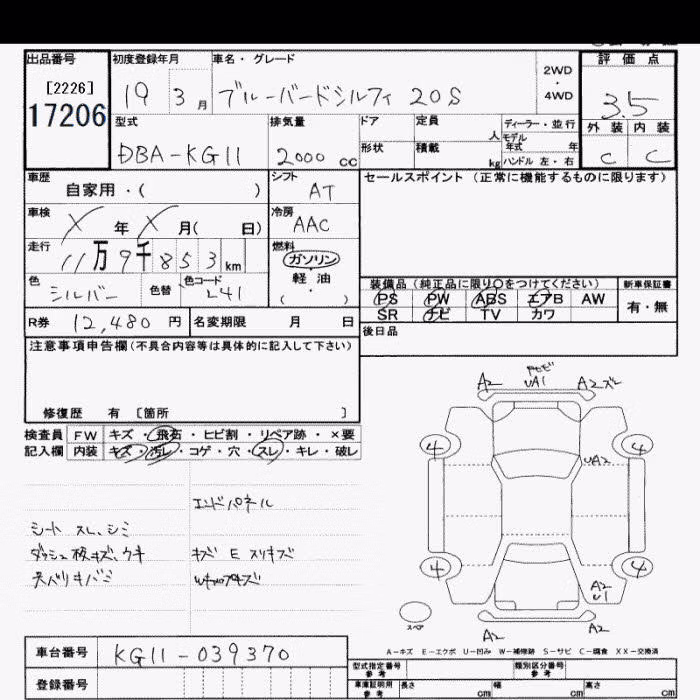 出品番号 初度登録年月 車名・グレード 評価点
[2226] 19 3月 ブルーバードシルフィ 20S 2WD・4WD 3.5
17206
型式 排気量 ドア 定員 人 ディーラー・並行 外装 内装
DBA-KG11 2000cc 形状 積載 kg モデル年式 年 C C
ハンドル 左・右
車歴 シフト セールスポイント（正常に機能するものに限ります）
自家用・( ) AT
車検 冷房
X年X月( 日) AAC
走行 燃料
11万9千853km ガソリン
軽油
( ・ )
色 色替 色コード
シルバー L41
装備品（純正品に限り○をつけてください） 新車保証書
PS PW ABS エアB AW 有・無
SR ナビ TV カワ
R券 12,480円 名変期限 月 日 後日品
注意事項申告欄(不具合内容等は具体的に記入して下さい)
修復歴 有 [箇所 ]
検査員 FW キズ・飛石・ヒビ割・リペア跡・×要
記入欄 内装 キズ・汚レ・コゲ・穴・スレ・キレ・破レ
A2 UA1 A2 ズレ
4 4
UA2
エンドパネル
シート スレ、シミ
ダッシュ板キズ、ウキ キズ E スリキズ
天バリキバミ
4 4
A2
U1
スペア
A2 A2
A-キズ E-エクボ U-凹み W-補修跡 S-サビ C-腐食 XX-交換済
車台番号 KG11-039370
登録番号
型式指定番号 参考 類別区分番号 参考
車庫証明用 参考 長さ cm 幅 cm 高さ cm